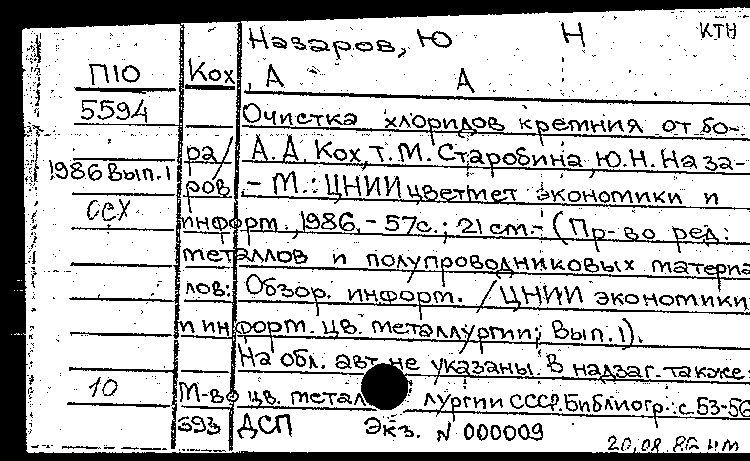 Назаров, Ю Н КТН
П10 Кох, А А
5594 Очистка хлоридов кремния от бо-
ра / А.А. Кох, Т.М. Старобина, Ю.Н. Наза-
1986 Вып.1 ров. – М.: ЦНИИцветмет экономики и
осх информ., 1986. – 57с.; 21 см.– (Пр-во ред.
металлов и полупроводниковых материа
лов: Обзор. информ. / ЦНИИ экономики
и информ. цв. металлургии; Вып.1).
На обл. авт. не указаны. В надзаг. также:
10 М-во цв. метал лургии СССР. Библиогр.: с.53-56
593 ДСП Экз. N 000009
20.08.86 нм